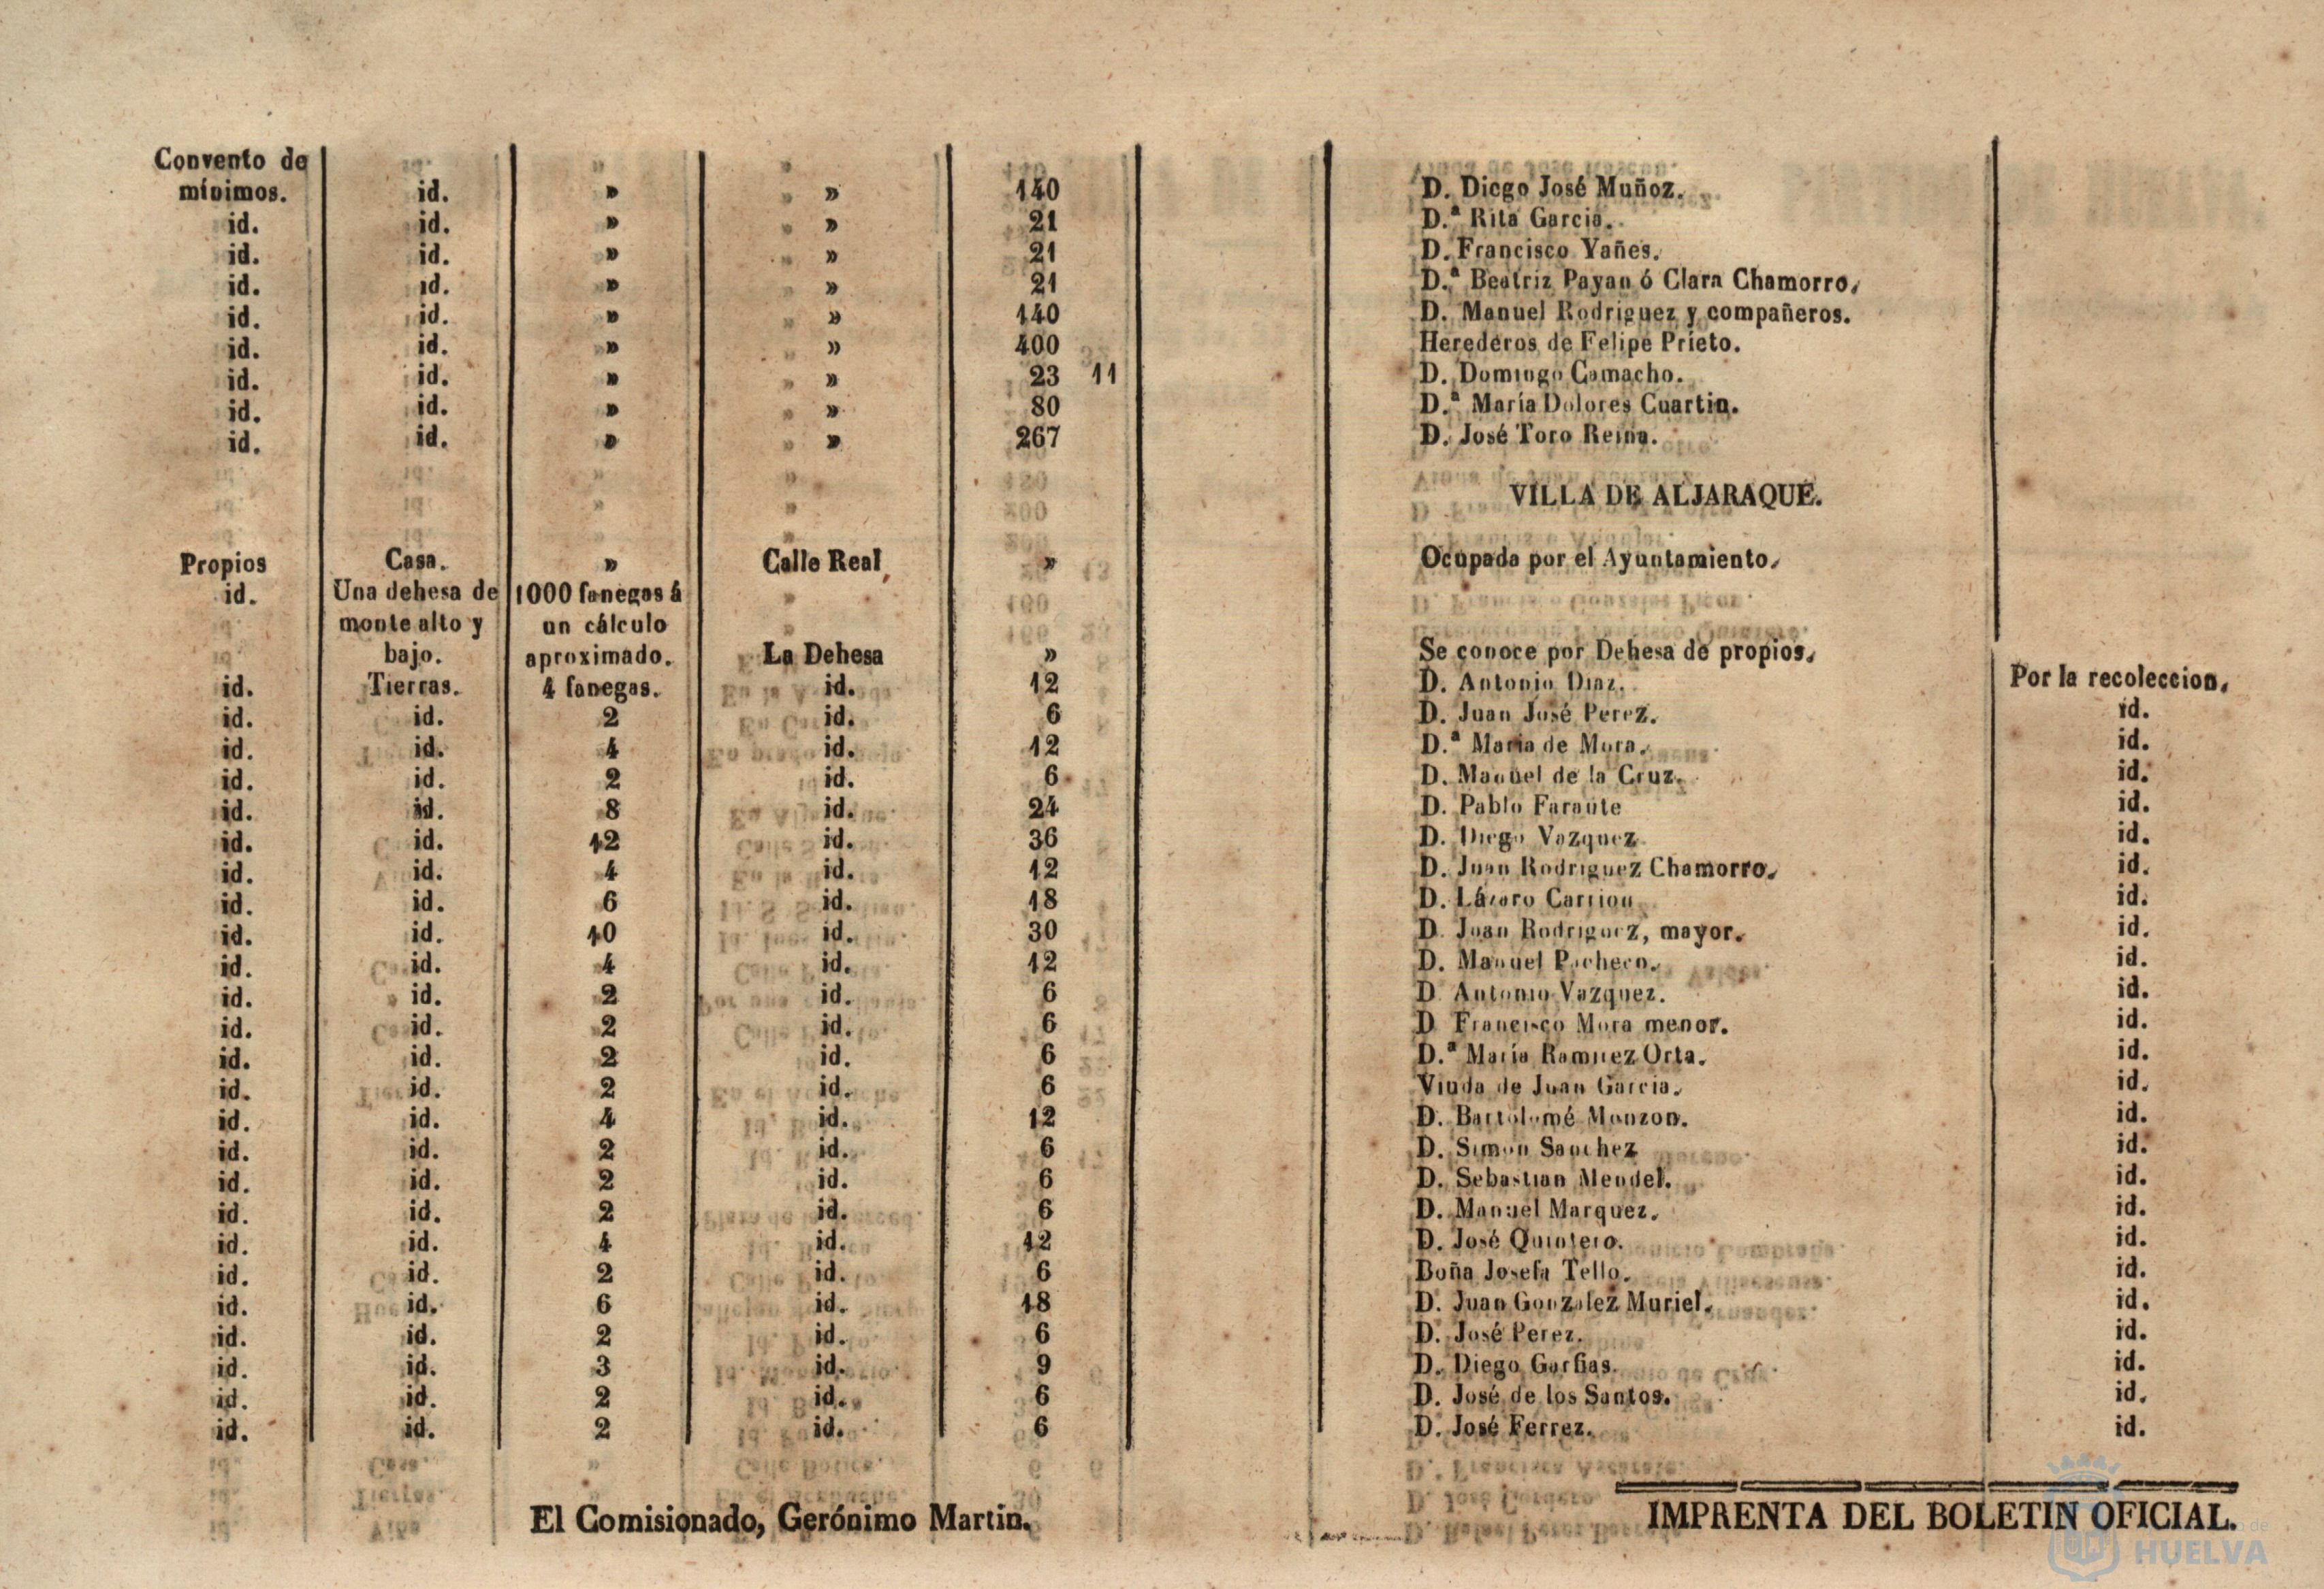 Convento de
mínimos. id. » » 140 D. Diego José Muñoz.
id. id. » » 21 D.ª Rita Garcia.
id. id. » » 21 D. Francisco Yañes.
id. id. » » 21 D.ª Beatriz Payan ó Clara Chamorro.
id. id. » » 140 D. Manuel Rodriguez y compañeros.
id. id. » » 400 Herederos de Felipe Prieto.
id. id. » » 23 11 D. Domingo Camacho.
id. id. » » 80 D.ª María Dolores Cuartin.
id. id. » » 267 D. José Toro Reina.
VILLA DE ALJARAQUE.
Propios Casa. » Calle Real » Ocupada por el Ayuntamiento.
id. Una dehesa de 1000 fanegas á
monte alto y un cálculo
bajo. aproximado. La Dehesa » Se conoce por Dehesa de propios.
id. Tierras. 4 fanegas. id. 12 D. Antonio Diaz. Por la recoleccion.
id. id. 2 id. 6 D. Juan José Perez. id.
id. id. 4 id. 12 D.ª Maria de Mora. id.
id. id. 2 id. 6 D. Manuel de la Cruz. id.
id. id. 8 id. 24 D. Pablo Faraute id.
id. id. 12 id. 36 D. Diego Vazquez id.
id. id. 4 id. 12 D. Juan Rodriguez Chamorro. id.
id. id. 6 id. 18 D. Lázaro Carrion id.
id. id. 10 id. 30 D. Juan Rodriguez, mayor. id.
id. id. 4 id. 12 D. Manuel Pacheco. id.
id. id. 2 id. 6 D Antonio Vazquez. id.
id. id. 2 id. 6 D Francisco Mora menor. id.
id. id. 2 id. 6 D.ª María Ramirez Orta. id.
id. id. 2 id. 6 Viuda de Juan Garcia. id.
id. id. 4 id. 12 D. Bartolomé Monzon. id.
id. id. 2 id. 6 D. Simon Sanchez id.
id. id. 2 id. 6 D. Sebastian Mendel. id.
id. id. 2 id. 6 D. Manuel Marquez. id.
id. id. 4 id. 12 D. José Quintero. id.
id. id. 2 id. 6 Doña Josefa Tello. id.
id. id. 6 id. 18 D. Juan Gonzalez Muriel. id.
id. id. 2 id. 6 D. José Perez. id.
id. id. 3 id. 9 D. Diego Garfias. id.
id. id. 2 id. 6 D. José de los Santos. id.
id. id. 2 id. 6 D. José Ferrez. id.
El Comisionado, Gerónimo Martin.
IMPRENTA DEL BOLETIN OFICIAL.
HUELVA